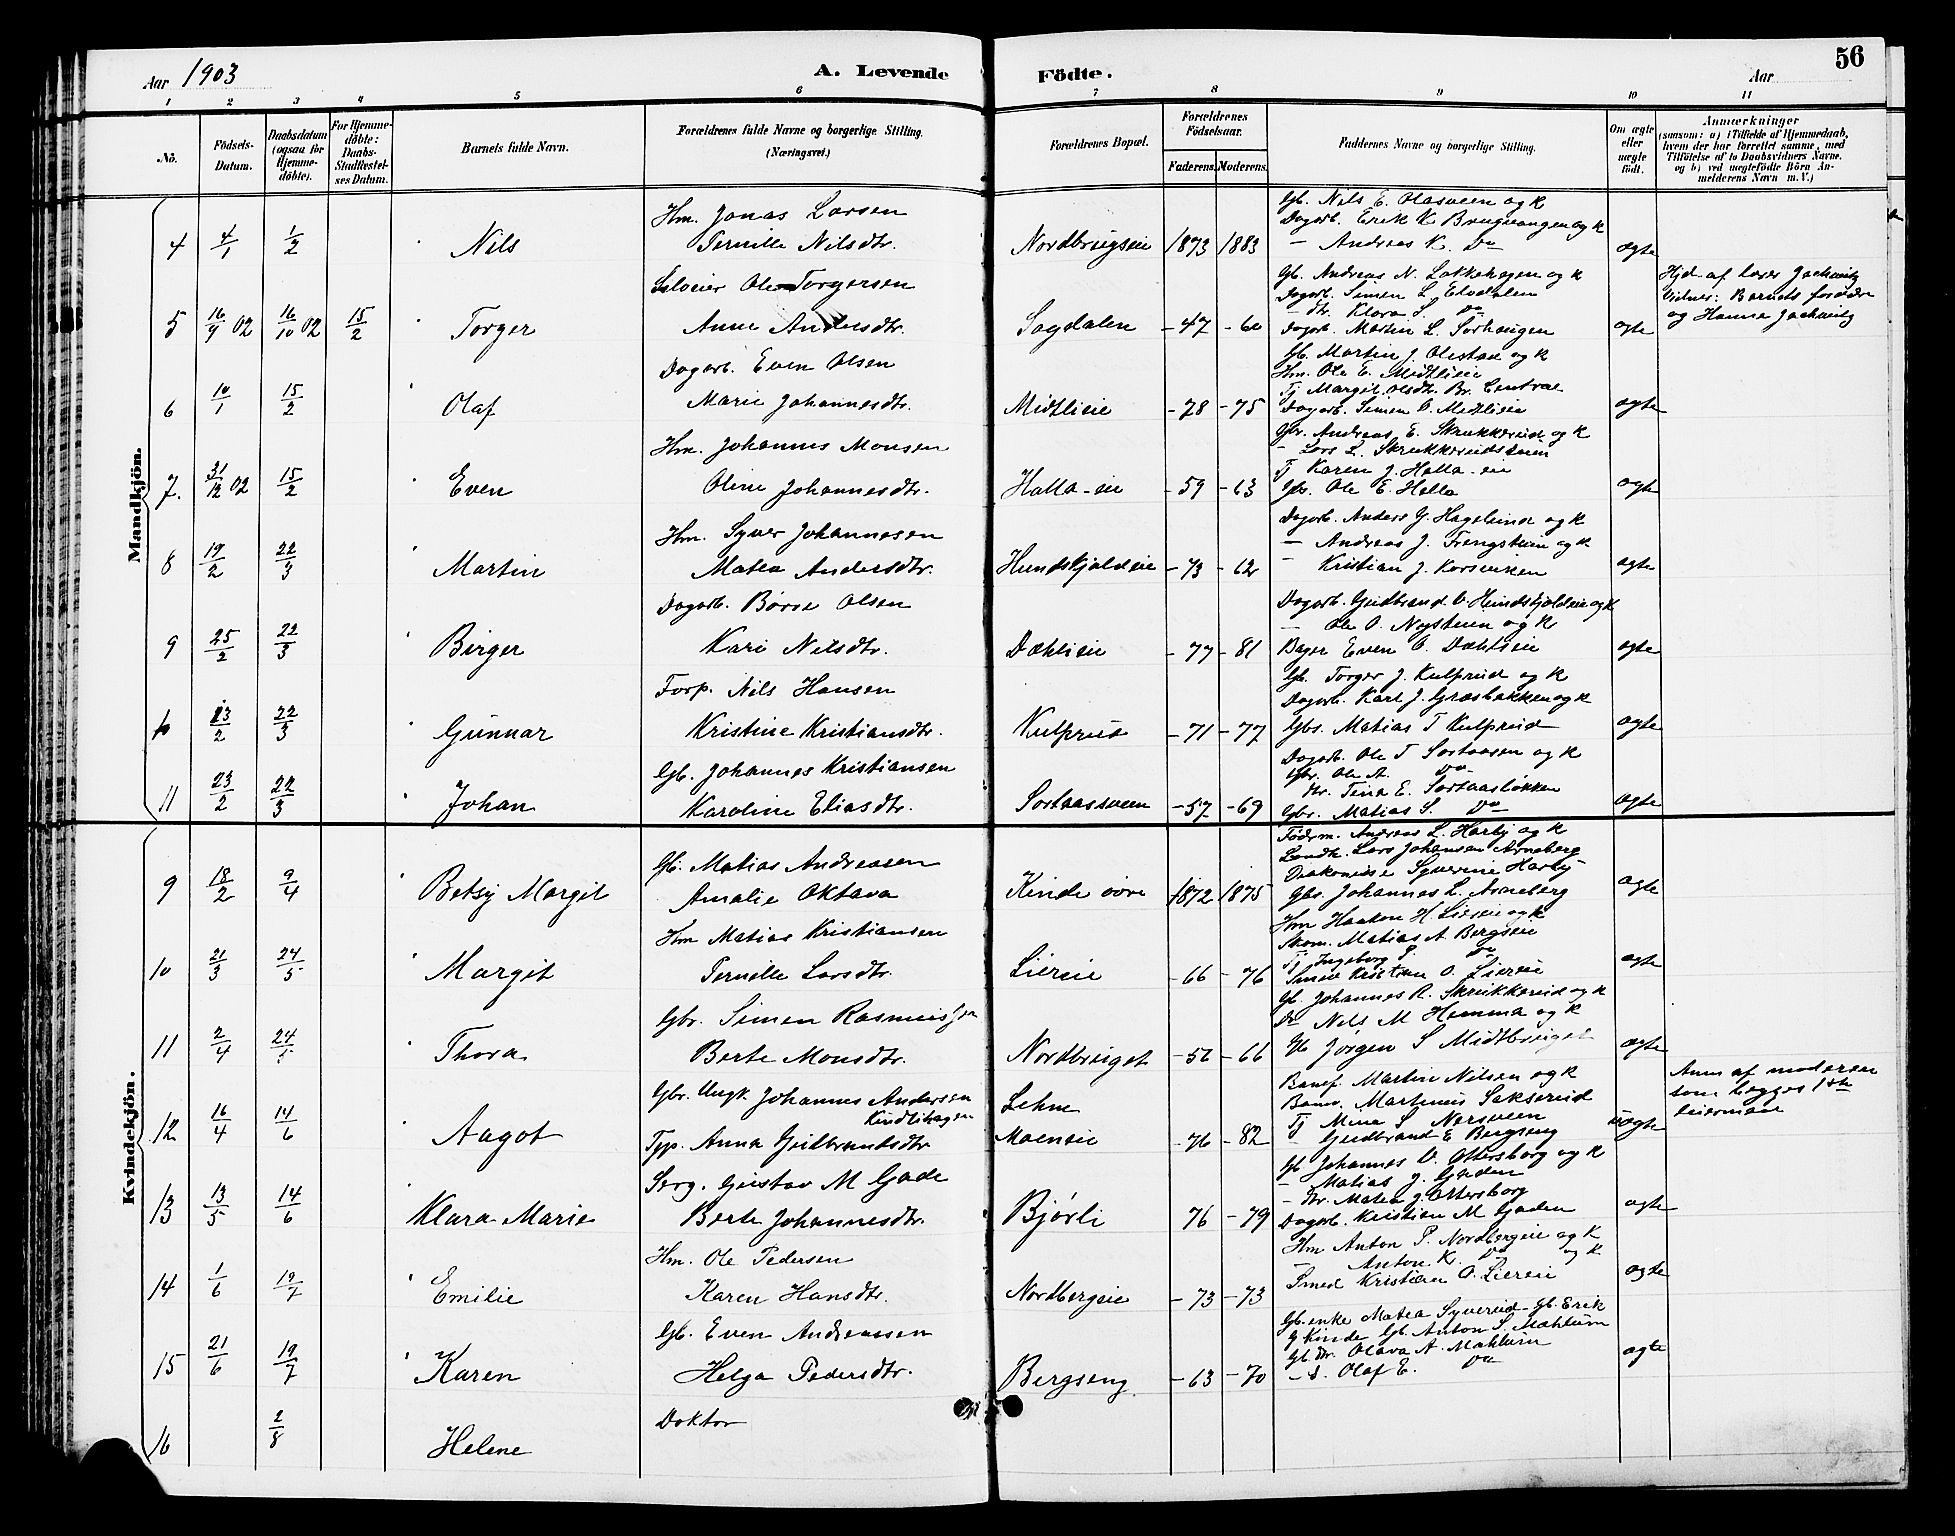 56
Aar 1903
A. Levende Födte.
Aar
1 2 3 4 5 6 7 8 9 10 11
No.
Födsels-Datum.
Daabsdatum (ogsaa for Hjemmedöbte).
For Hjemmedöbte: Daabs-Stadfæstelses Datum.
Barnets fulde Navn.
Forældrenes fulde Navne og borgerlige Stilling. (Næringsvei.)
Forældrenes Bopæl.
Forældrenes Födselsaar.
Faderens. Moderens.
Faddernes Navne og borgerlige Stilling.
Om ægte eller uægte födt.
Anmærkninger
(saasom: a) i Tilfælde af Hjemmedaab, hvem der har forrettet samme, med Tilföielse af to Daabsvidners Navne, og b) ved uægtefödte Börn Anmelderens Navn m. V.)
Mandkjön.
4 4/1 1/2 Nils
Hm. Jonas Larsen
Pernille Nilsdtr.
Nordbrugseie 1873 1883
Gb. Nils E. Olasveen og k
Dagarb. Erik K. Brugvangen og k
— Andreas K. Do
ægte
5 16/9 02 16/10 02 15/2 Torger
Selveier Ole Torgersen
Anne Andersdtr.
Sagdalen -47 -60
Gb. Andreas N. Løkkehagen og k
Dagarb. Simen L. Elvdalen
Dtr. Klara S. Do
Dagarb. Martin L. Sørhaugen
ægte
Hjd. af lærer Jachwitz
Vidner: Barnets forældre
og Hanna Jachwitz
6 10/1 15/2 Olaf
Dagarb. Even Olsen
Marie Johannesdtr.
Midtlieie -78 -75
Gb. Martin J. Olestad og k
Hm. Ole E. Midtlieie
Tj Margit Olsdtr. Br. Central
Dagarb. Simen O. Midtlieie
ægte
7. 31/12 02 15/2 Even
Hm. Johannes Monsen
Oline Johannesdtr.
Halla-eie -59 -63
Gbr. Andreas E. Skrukkerud og k
— Lars L. Skrukkerudstuen
Tj Karen J. Halla-eie
Gbr. Ole E. Halla
ægte
8 19/2 22/3 Martin
Hm. Syver Johannesen
Matea Andersdtr.
Hundskjoldeie -73 -62
Dagarb. Anders G. Hagelund og k
— Andreas J. Trengstuen og k
— Kristian J. Korsveken
ægte
9 25/2 22/3 Birger
Dagarb. Børre Olsen
Kari Nilsdtr.
Dæhlieie -77 -81
Dagarb. Gudbrand O. Hundskjoldeie og k
— Ole O. Nystuen og k
Bager Even O. Dæhlieie
ægte
10 23/2 22/3 Gunnar
Forp. Nils Hansen
Kristine Kristiansdtr.
Kulprud -71 -77
Gb. Torger J. Kulprud og k
Dagarb. Karl J. Græsbakken og k
Gbs. Matias T Kulprud
ægte
11 23/2 22/3 Johan
Gb. Johannes Kristiansen
Karoline Eliasdtr.
Sortaassveen -57 -69
Dagarb. Ole T Sortaasen og k
Gbr. Ole A. Do
Dtr. Tina E. Sortaasløkken
Gbr. Matias S. Do
ægte
Kvindekjön.
9 18/2 9/4 Betsy Margit
Gb. Matias Andreasen
Amalie Oktava
Kinde øvre 1872 1875
Födrm. Andreas L. Harby og k
Landh. Lars Johansen Arneberg
Diakonisse Syverine Harby
Gbr Johannes L. Arneberg
ægte
10 21/3 24/5 Margit
Hm Matias Kristiansen
Pernille Larsdtr.
Liereie -66 -76
Hm Haakon H. Liereie og k
Skom. Matias A Bergseie
Tj Ingeborg P. Do
Smed Kristian O. Liereie
ægte
11 2/4 24/5 Thora
Gbr. Simen Rasmussen
Berte Monsdtr.
Nordbruget -56 -66
Gb. Johannes R. Skrukkerud og k
Do Nils M Homma og k
Gb Jørgen S Midtbruget
ægte
12 16/4 14/6 Aagot
Gbr. Ungk. Johannes Andersen
Kindlihagen
Typ. Anna Gudbrandsdtr
Lehne
Moeneie -76 -82
Banef. Martin Nilsen og k
Banv. Martinus Saksrud
Tj Mina S Nersveen
— Gudbrand E Bergseng
uægte
Anm af moderen
som begges 1ste
leiermaal
13 13/5 14/6 Klara Marie
Serg. Gustav M Gade
Berte Johannesdtr.
Bjørli 76 -79
Gb Johannes O. Ottersborg og k
— Matias J. Gaden
— Dtr. Matea J Ottersborg
Dagarb. Kristian M Gaden
ægte
14 1/6 19/7 Emilie
Hm. Ole Pedersen
Karen Hansdtr.
Nordbergeie -73 -73
Hm Anton P. Nordbergeie og k
— Anton K. Do og k
Smed Kristian O. Liereie
ægte
15 21/6 19/7 Karen
Gb. Even Andreassen
Helga Pedersdtr.
Bergseng -63 -70
Gb. enke Matea Syverud - Gb. Erik
G Kinde Gb. Anton S. Mæhlum
Gb. Dtr. Olava A. Mæhlum
— S. Olaf E. Do
ægte
16 2/8 Helene
Doktor